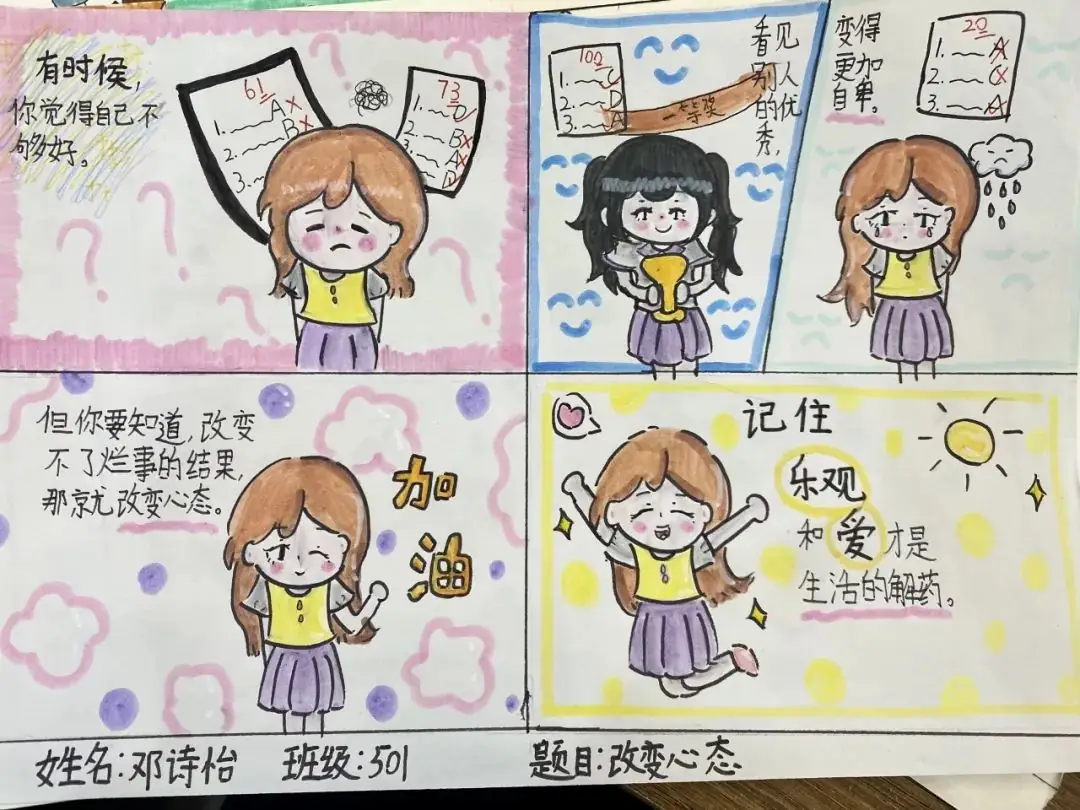 有时候，
你觉得自己不
够好。
61
A×
1.
B×
2.
3.
73
1.
D
2.
B×
3.
A×
4.
D
100
1.
C
2.
D
3.
A
一等奖
看见
别人
的优
秀，
变得
更加
自卑。
20
1.
A
2.
C
3.
A
但你要知道，改变
不了烂事的结果，
那就改变心态。
加
油
记住
乐观
和爱才是
生活的解药。
姓名：邓诗怡 班级：501 题目：改变心态